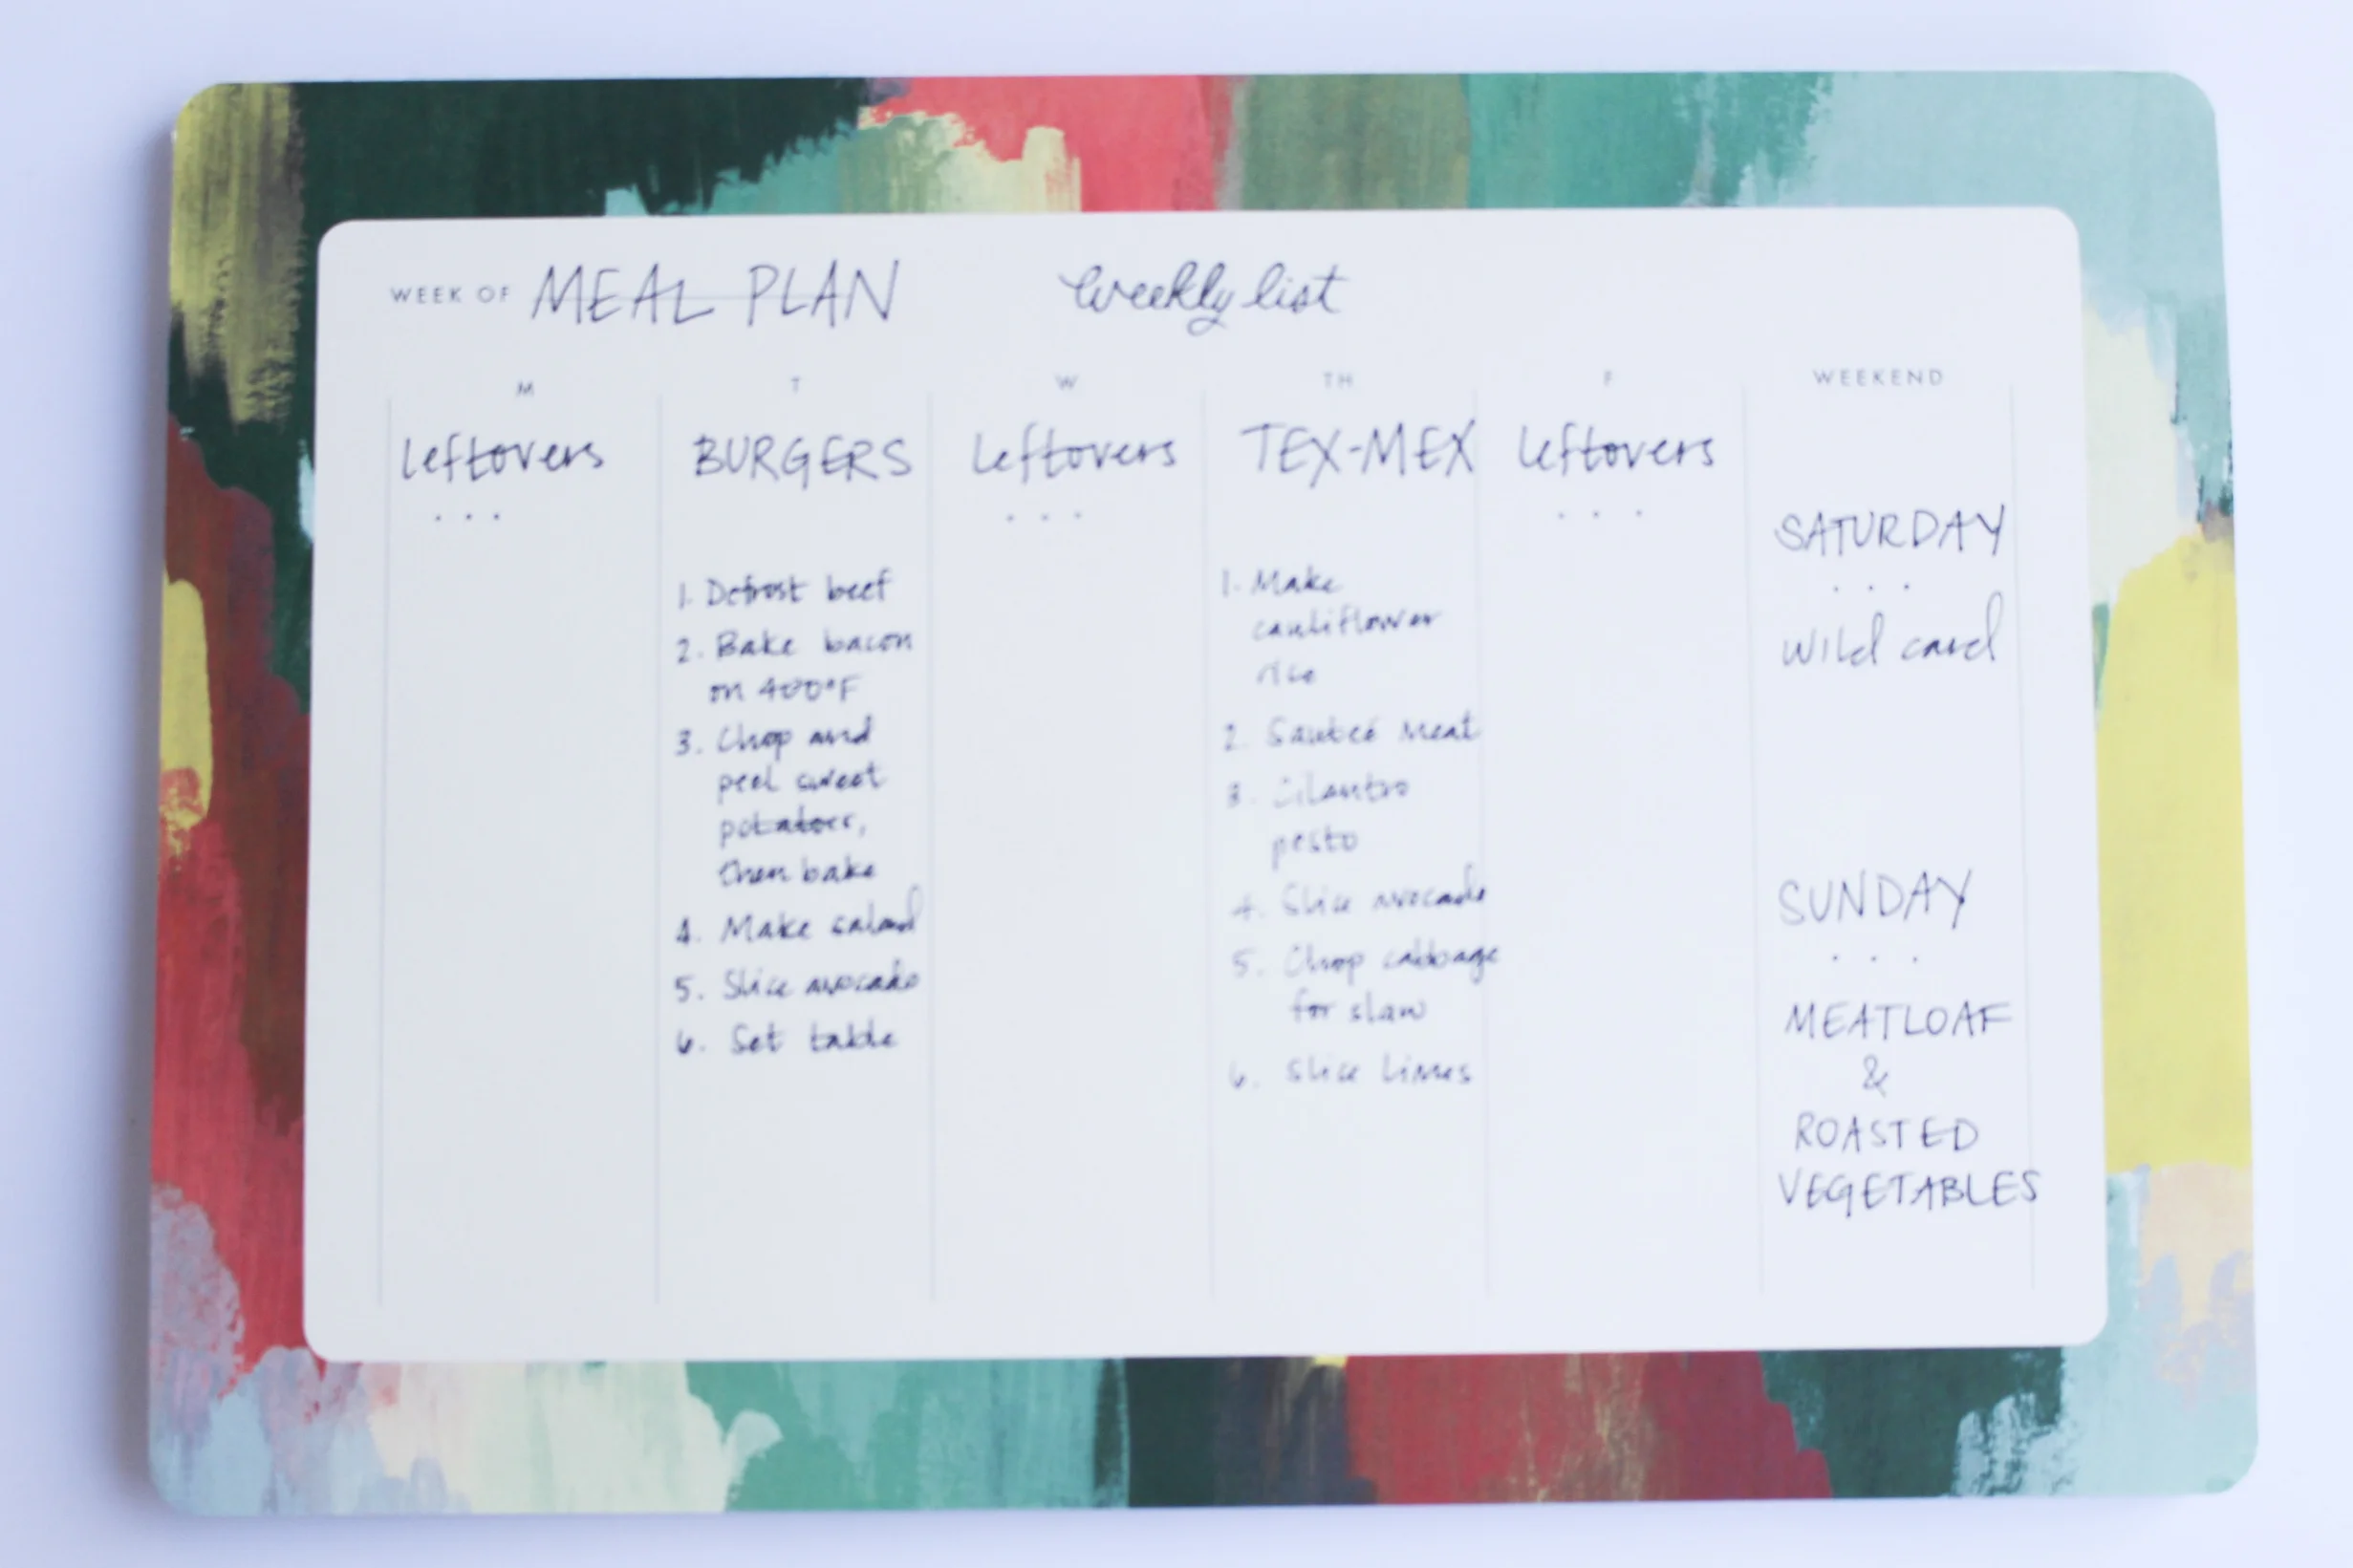 WEEK OF MEAL PLAN weekly list
M
leftovers
. . .
T
BURGERS
1. Defrost beef
2. Bake bacon
on 400°F
3. Chop and
peel sweet
potatoes,
then bake
4. Make salad
5. Slice avocado
6. Set table
W
leftovers
. . .
TH
TEX-MEX
1. Make
cauliflower
rice
2. Sauteé Meat
3. Cilantro
pesto
4. Slice avocado
5. Chop cabbage
for slaw
6. Slice limes
F
leftovers
. . .
WEEKEND
SATURDAY
. . .
Wild card
SUNDAY
. . .
MEATLOAF
&
ROASTED
VEGETABLES